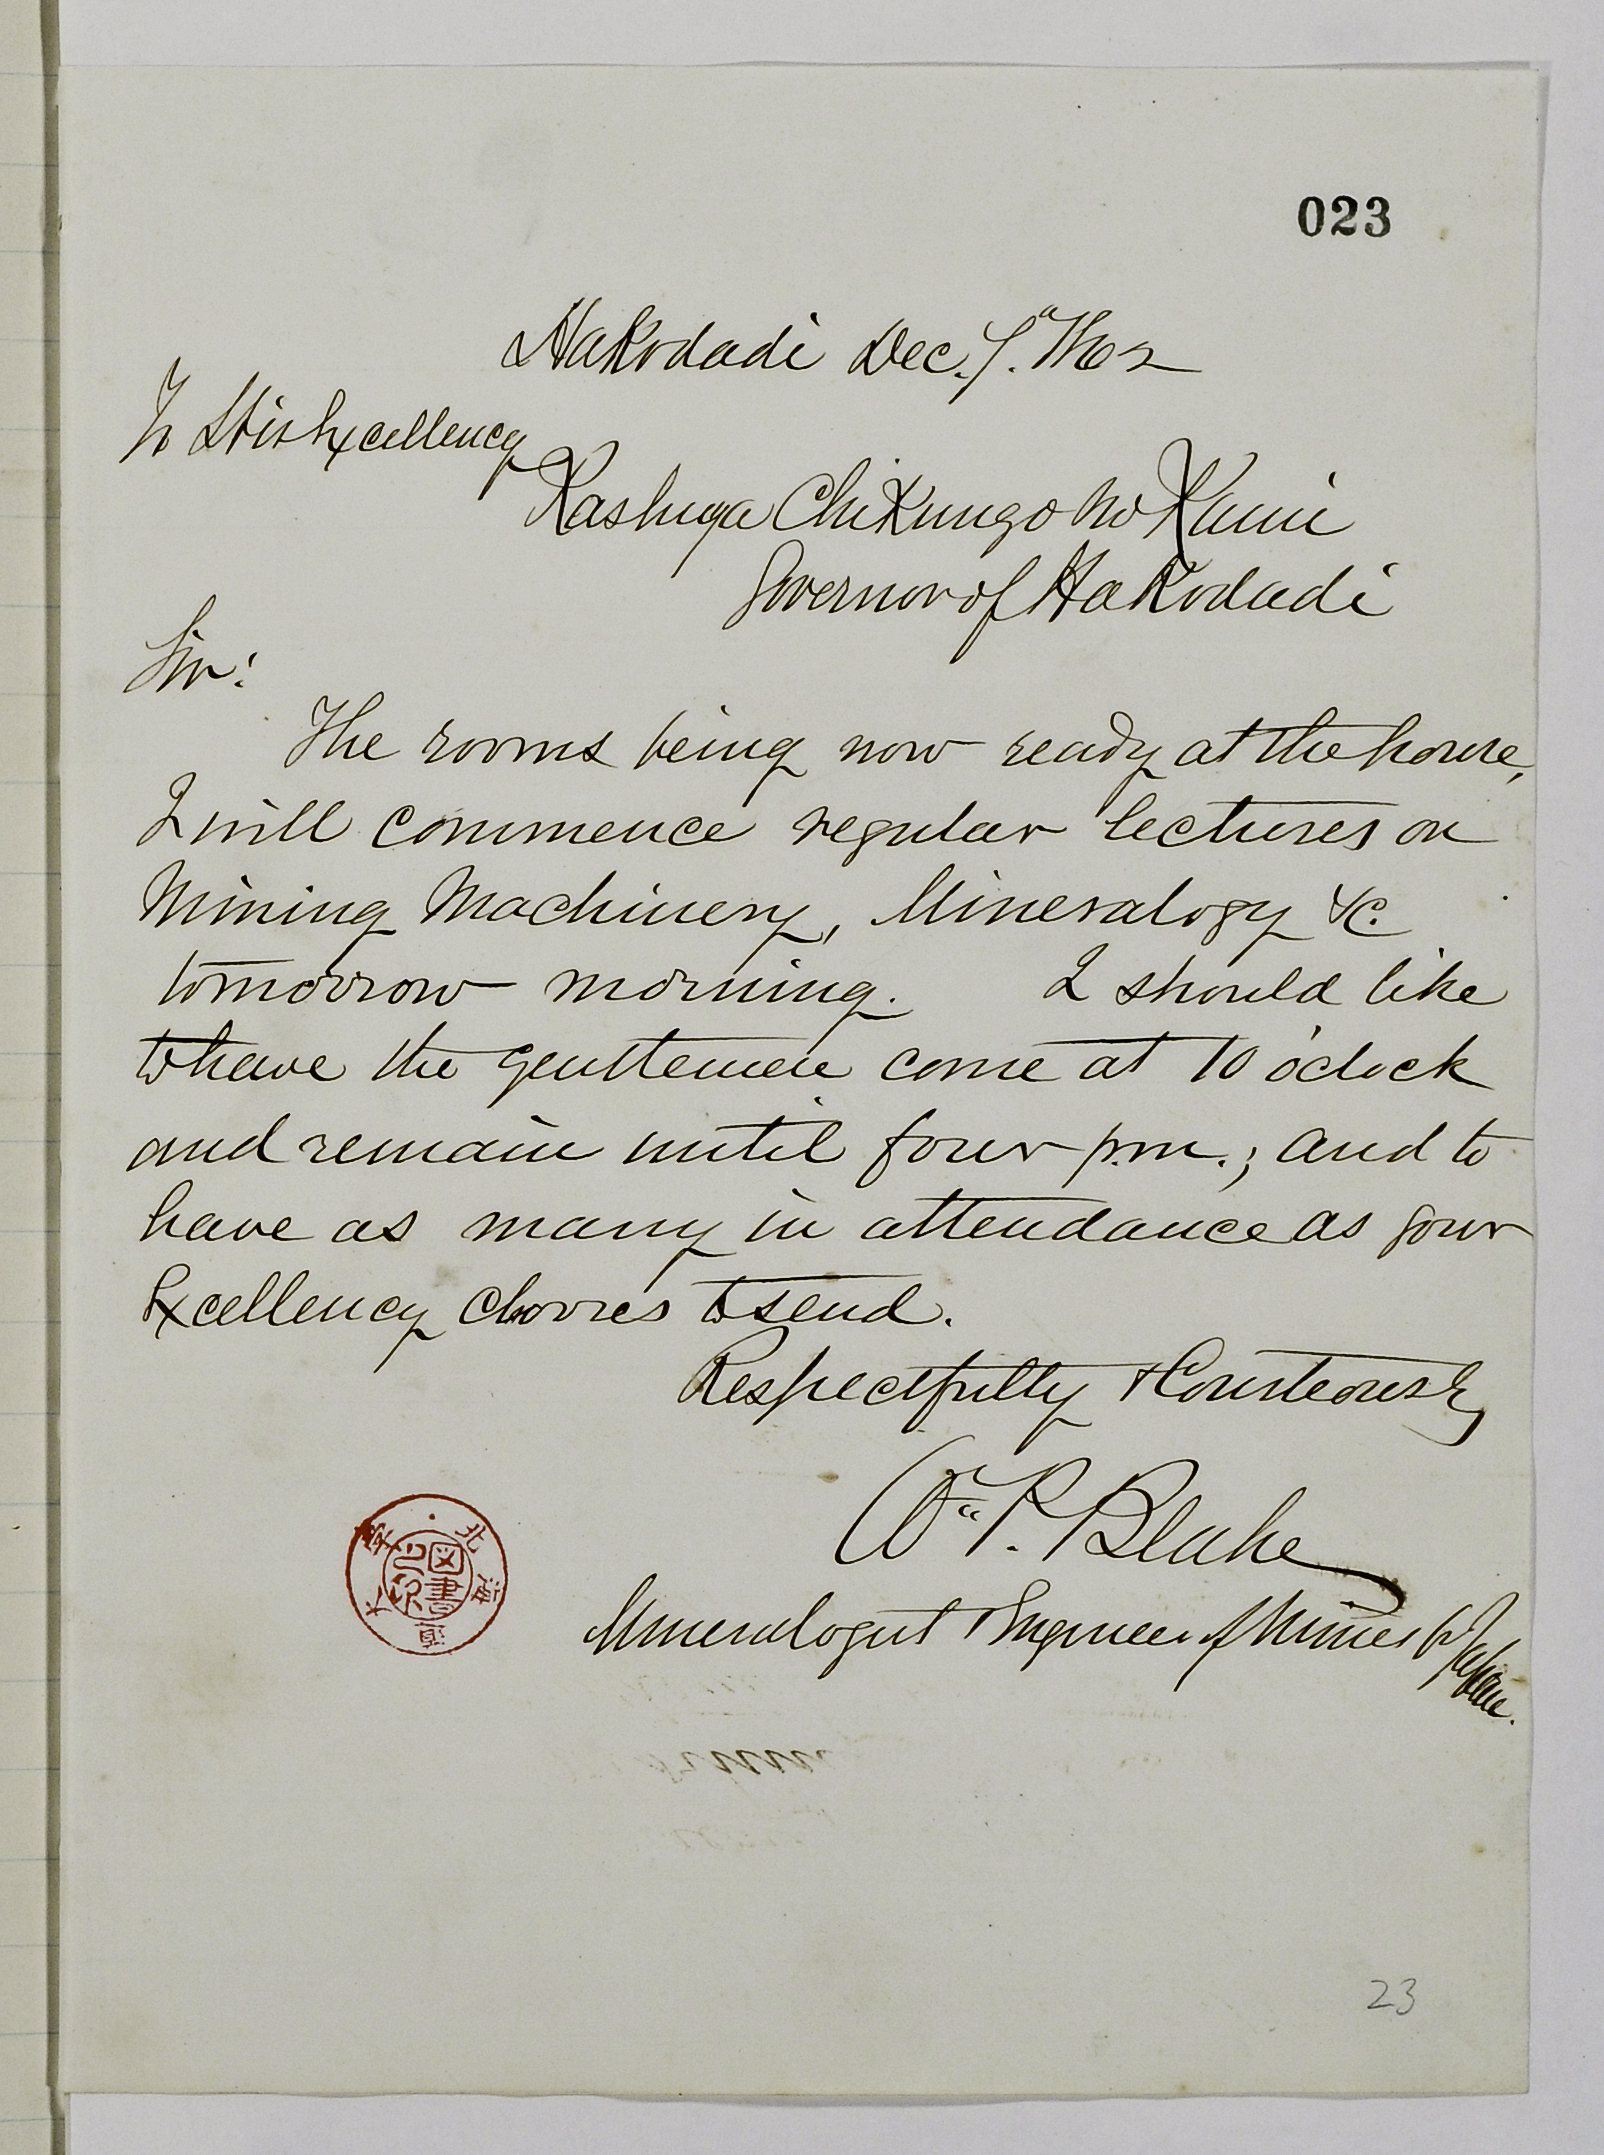 023
Hakodadi Dec. 1862
To His Excellency
Kashuya Chikungo no Kami
Governor of Hakodadi
Sir:
The rooms being now ready at the house,
I will commence regular lectures on
Mining Machinery, Mineralogy &c.
tomorrow morning. I should like
to have the gentlemen come at 10 o'clock
and remain until four p.m.; and to
have as many in attendance as your
Excellency chooses to send.
Respectfully & Courteously
Wm. P. Blake
Mineralogist & Engineer of Mines for Japan.
図書
23